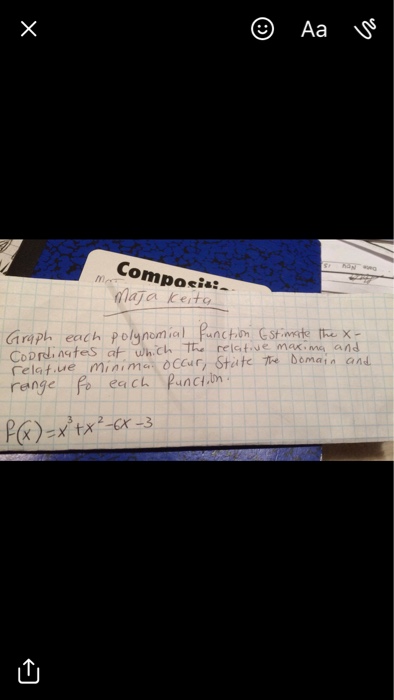 Aa
Compositi
Maja Keita
Graph each polynomial function Estimate the x-
coordinates at which the relative maxima and
relative minima occur, State the Domain and
range fo each function.
f(x)=x³+x²-6x-3